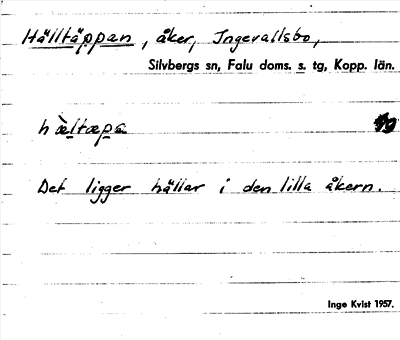 Hälltäppan, åker, Ingevallsbo,
Silvbergs sn, Falu doms. s. tg, Kopp. län.
Det ligger hällar i den lilla åkern.
Inge Kvist 1957.